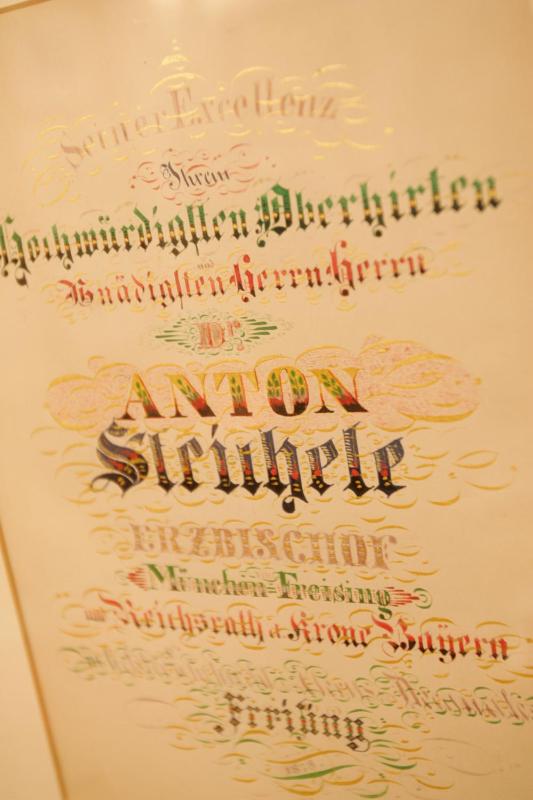 Seiner Excellenz
Ihrem
Hochwürdigsten Oberhirten
und
Gnädigsten Herrn Herrn
Dr.
ANTON
Steichele
ERZBISCHOF
München-Freising
und Reichsrath d. Krone Bayern